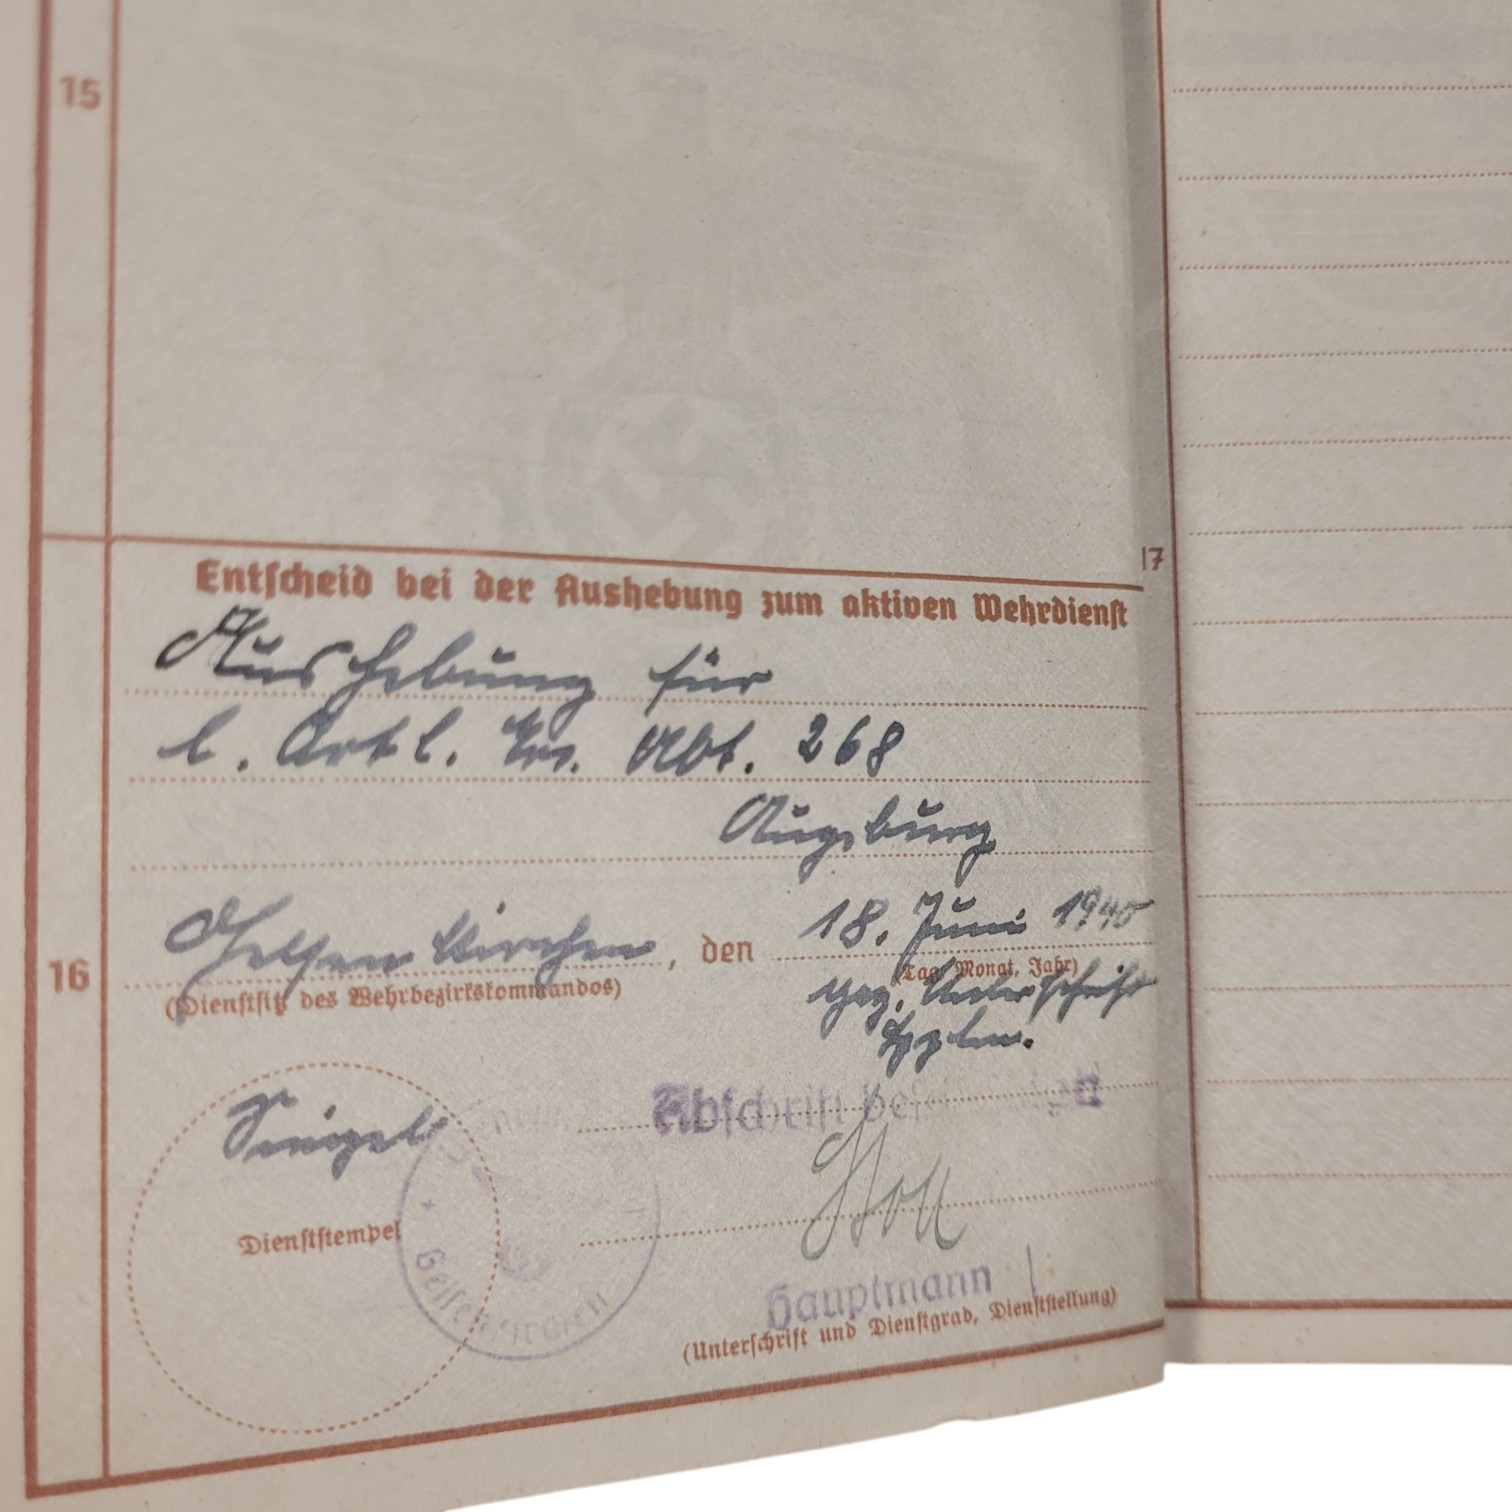 15
17
Entscheid bei der Aushebung zum aktiven Wehrdienst
Aushebung für
l. Artl. Ers. Abt. 268
Augsburg
16
Gelsenkirchen, den 18. Juni 1940
(Dienstsitz des Wehrbezirkskommandos)
(Tag, Monat, Jahr)
gez. Unterschrift
Hptm.
Siegel
Abschrift
Dienststempel
Gelsenkirchen
Hauptmann
(Unterschrift und Dienstgrad, Dienststellung)